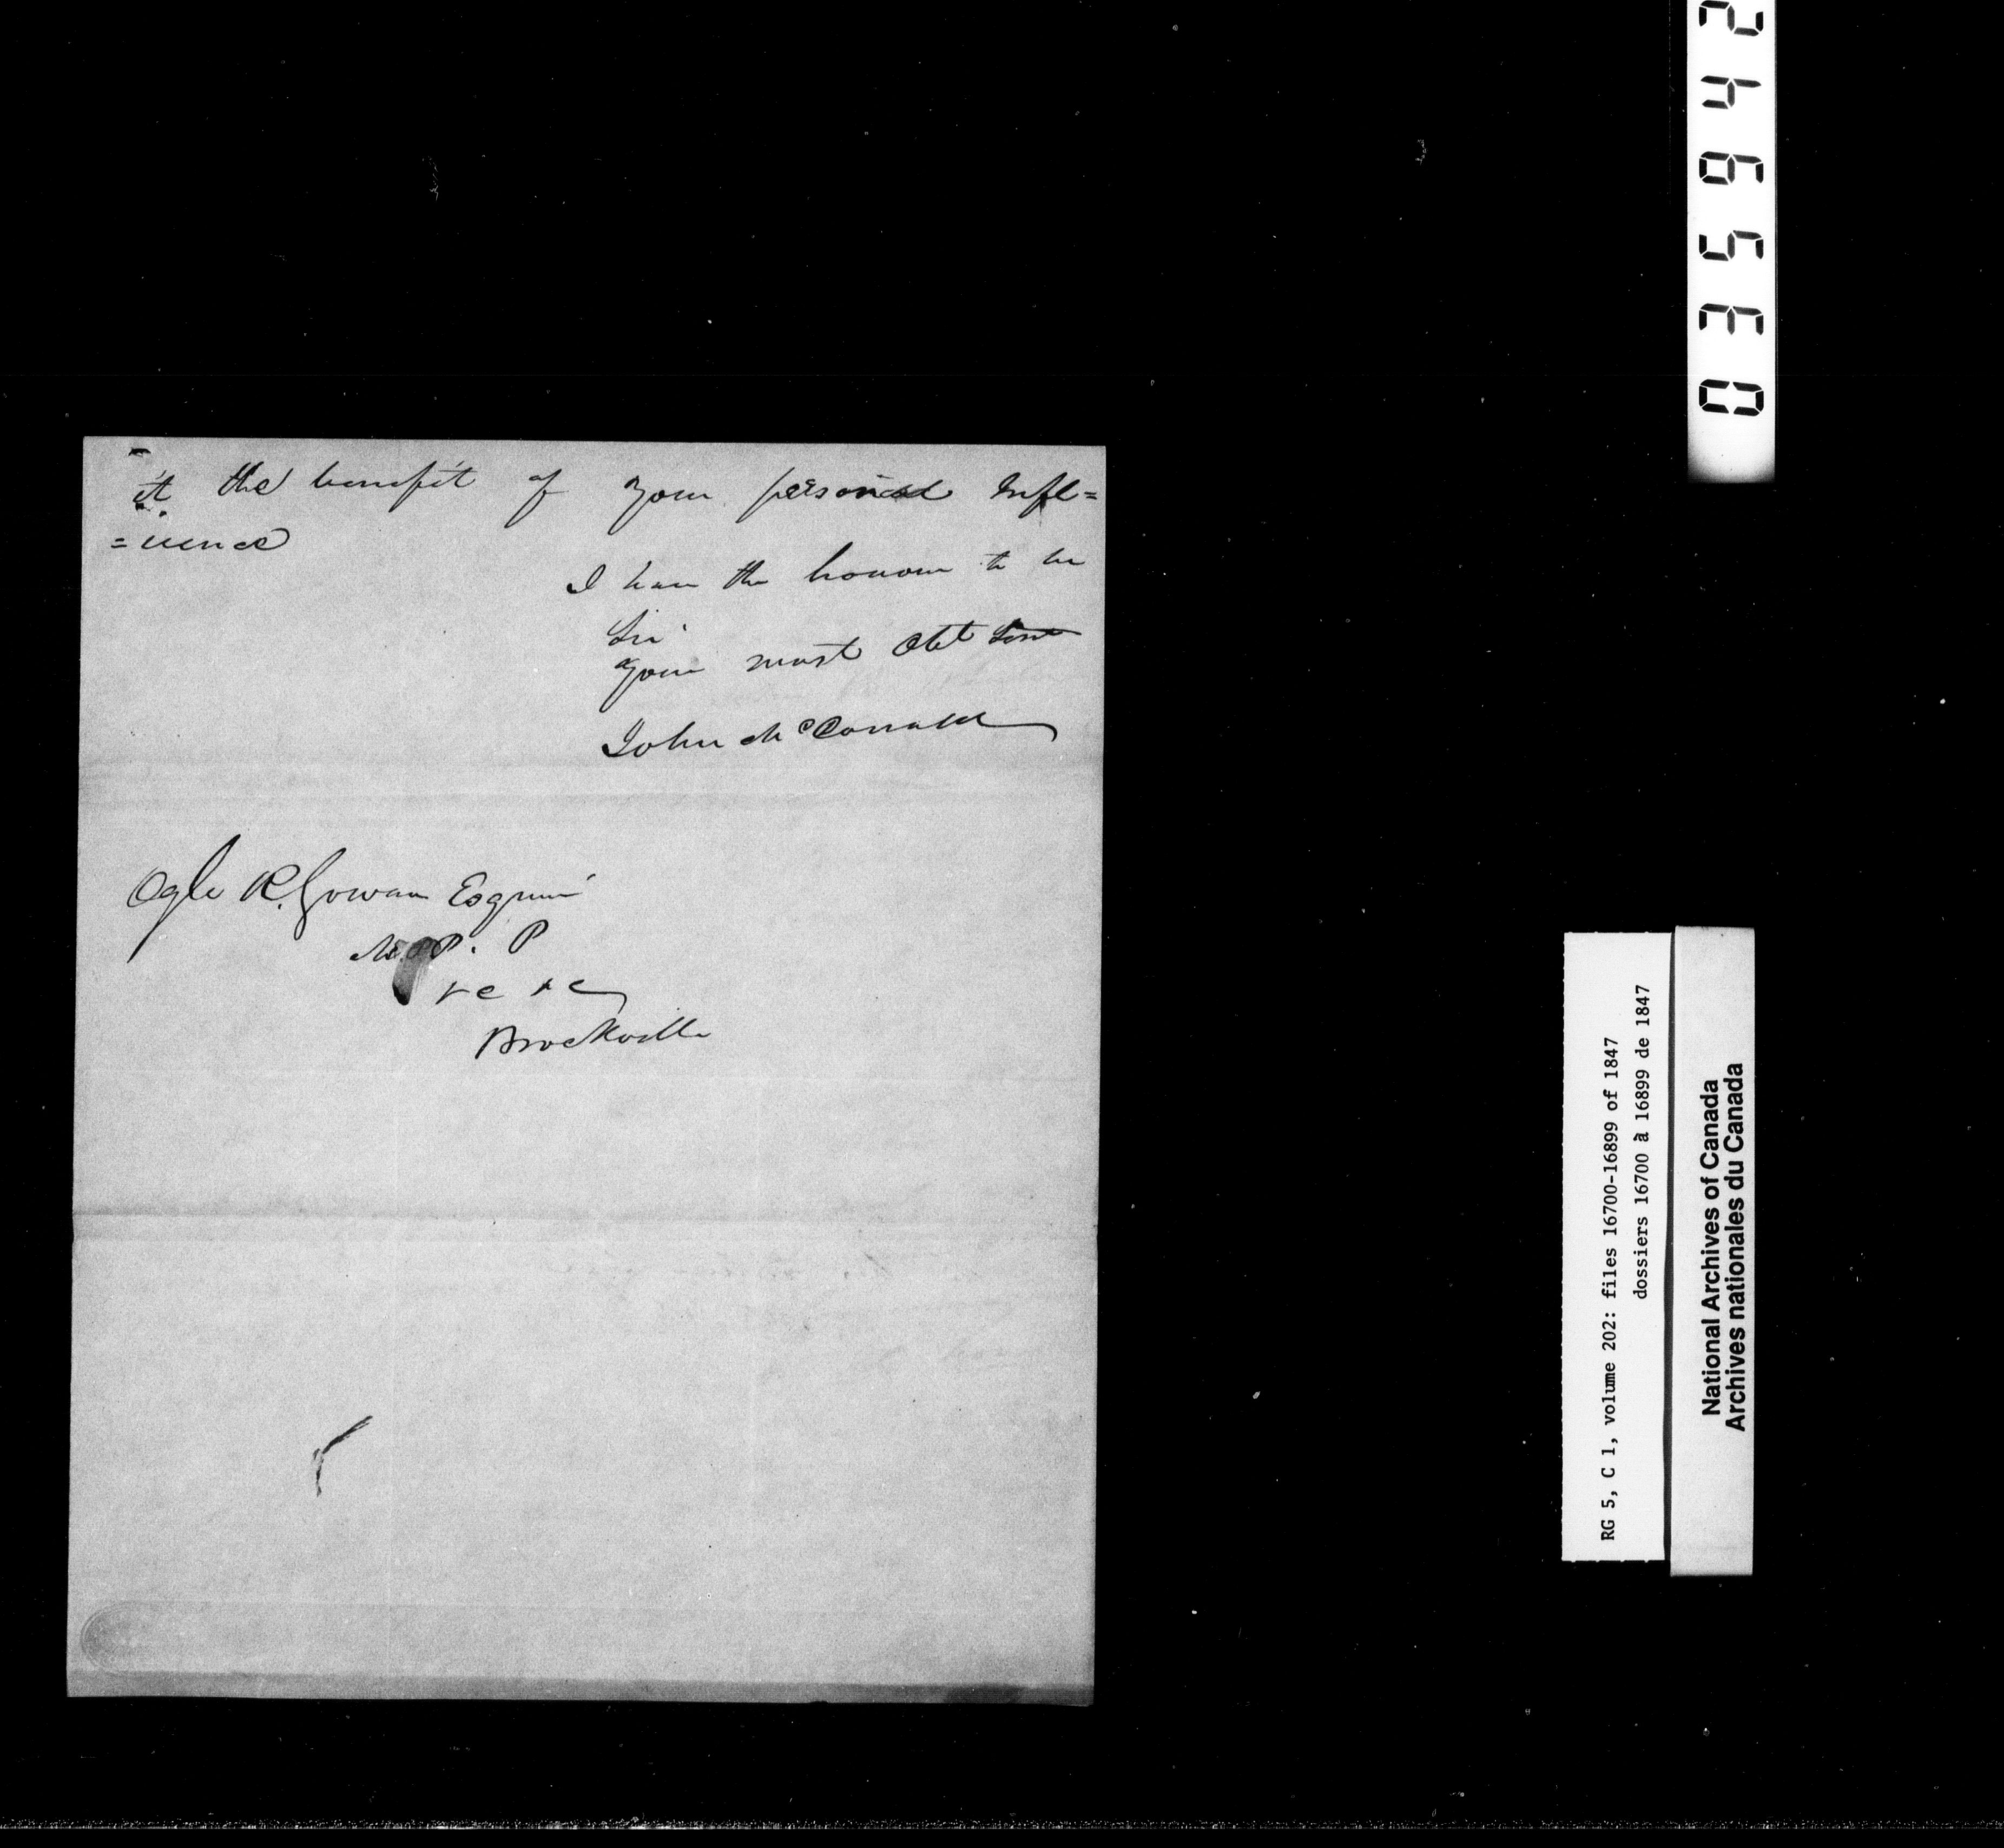 it the benefit of your personal Infl=
=uence
I have the honour to be
Sir
Your most Obt Servt
John McDonald
Ogle R. Gowan Esquire
M.P.P.
&c &c
Brockville
RG 5, C 1, volume 202: files 16700-16899 of 1847
dossiers 16700 à 16899 de 1847
National Archives of Canada
Archives nationales du Canada